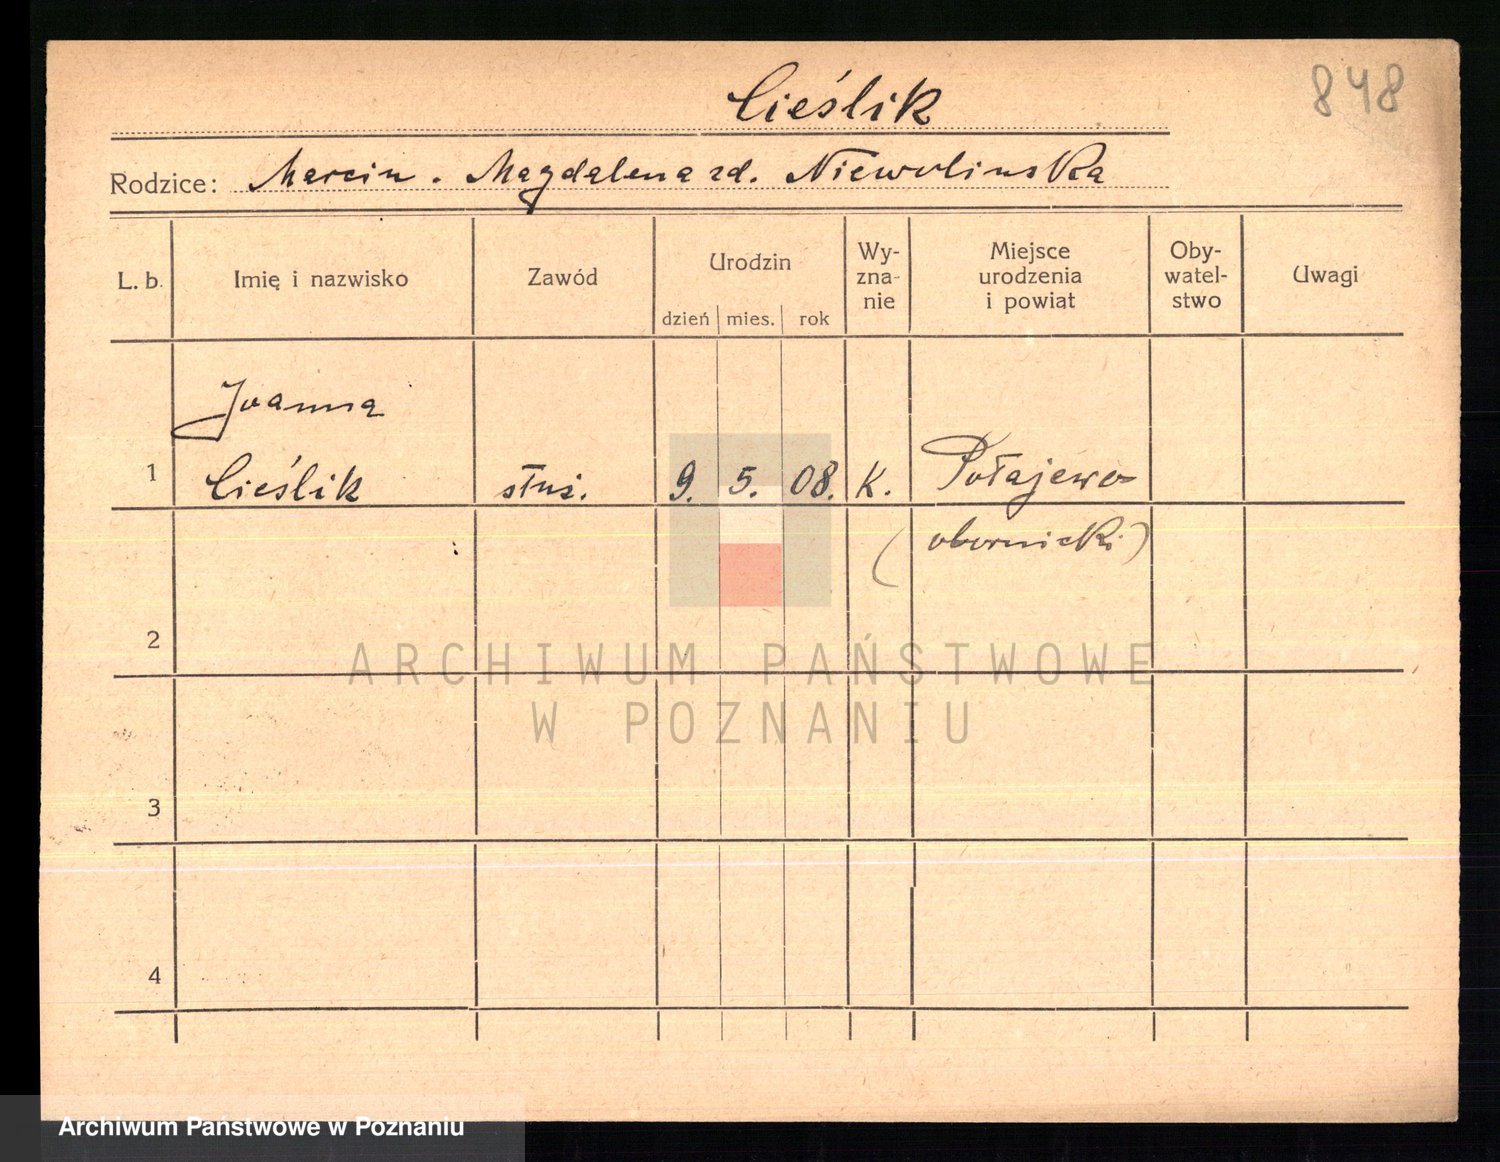 848
Cieślik
Rodzice: Marcin . Magdalena zd. Niewolinska
L. b. Imię i nazwisko Zawód Urodzin Wy- zna- nie Miejsce urodzenia i powiat Oby- watel- stwo Uwagi
dzień mies. rok
Joanna
1 Cieślik służ. 9. 5. 08. K. Połajewo
(obornicki)
2
ARCHIWUM PAŃSTWOWE
W POZNANIU
3
4
Archiwum Państwowe w Poznaniu